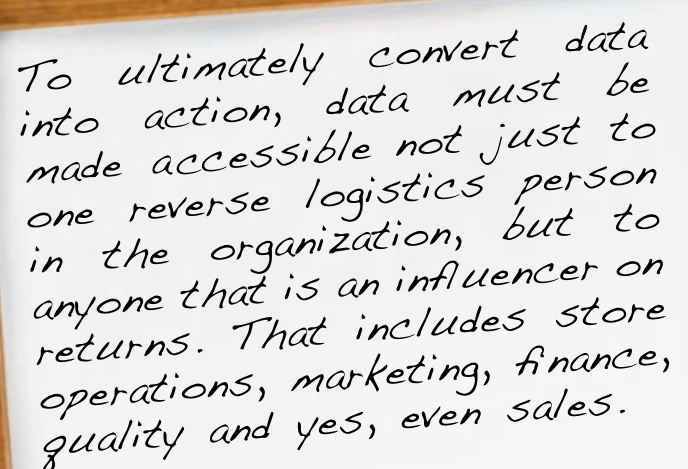 To ultimately convert data
into action, data must be
made accessible not just to
one reverse logistics person
in the organization, but to
anyone that is an influencer on
returns. That includes store
operations, marketing, finance,
quality and yes, even sales.